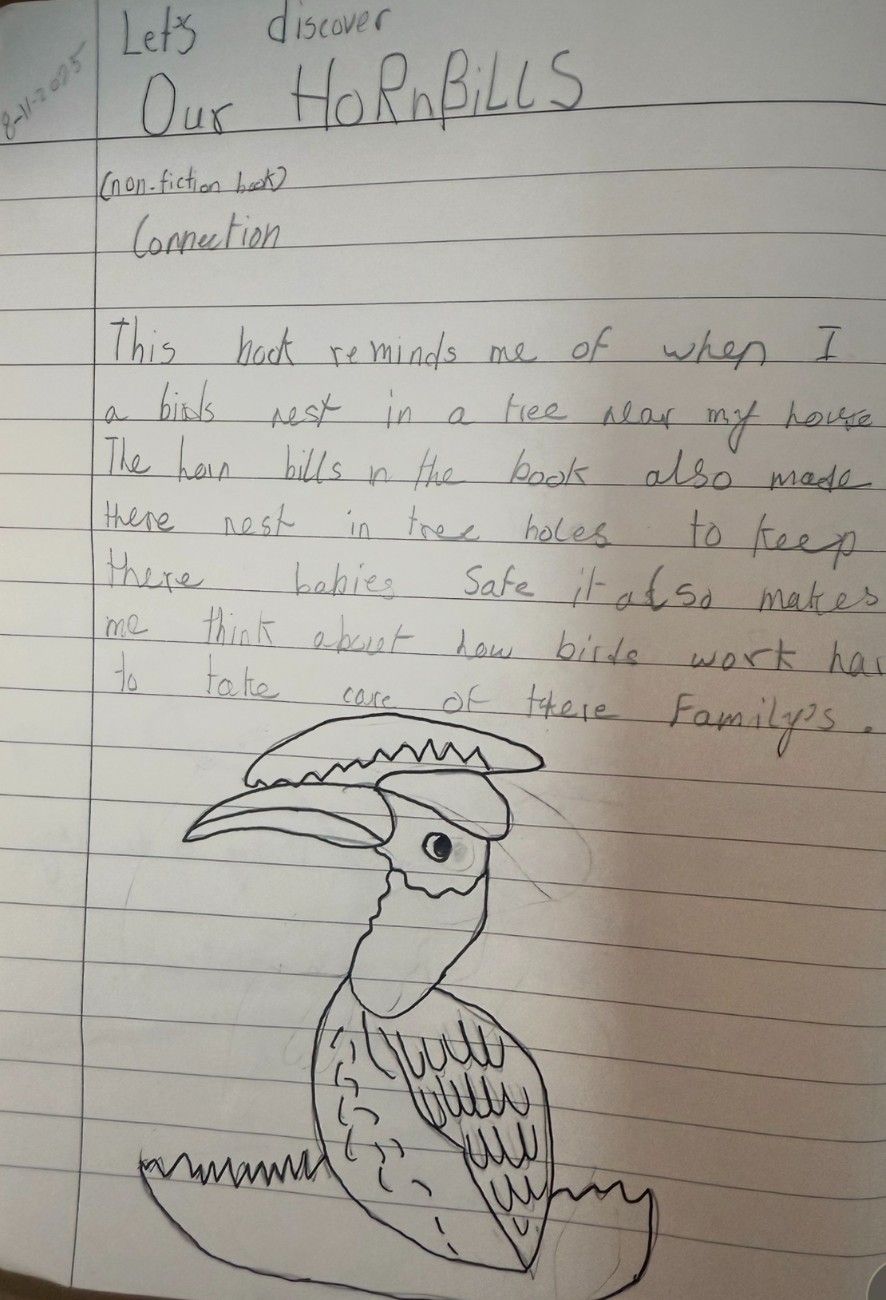 8-11-2025
Let's discover
Our HoRnBiLLS
(non-fiction book)
Connection
This book reminds me of when I
a birds nest in a tree near my house
The horn bills n the book also made
there nest in tree holes to keep
there babies Safe it also makes
me think about how birds work har
to take care of there Family's.